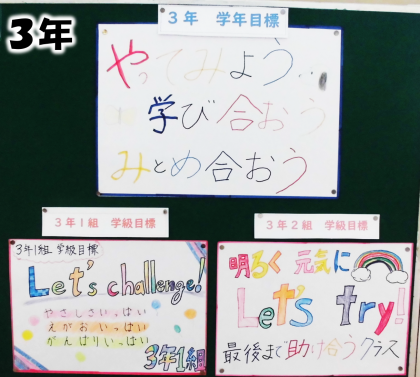 3年
3年 学年目標
やってみよう..
学び合おう
みとめ合おう
3年1組 学級目標
3年1組 学級目標
Let's challenge!
やさしさいっぱい
えがおいっぱい
がんばりいっぱい
3年1組
3年2組 学級目標
明るく 元気に
Let's try!
最後まで助け合うクラス